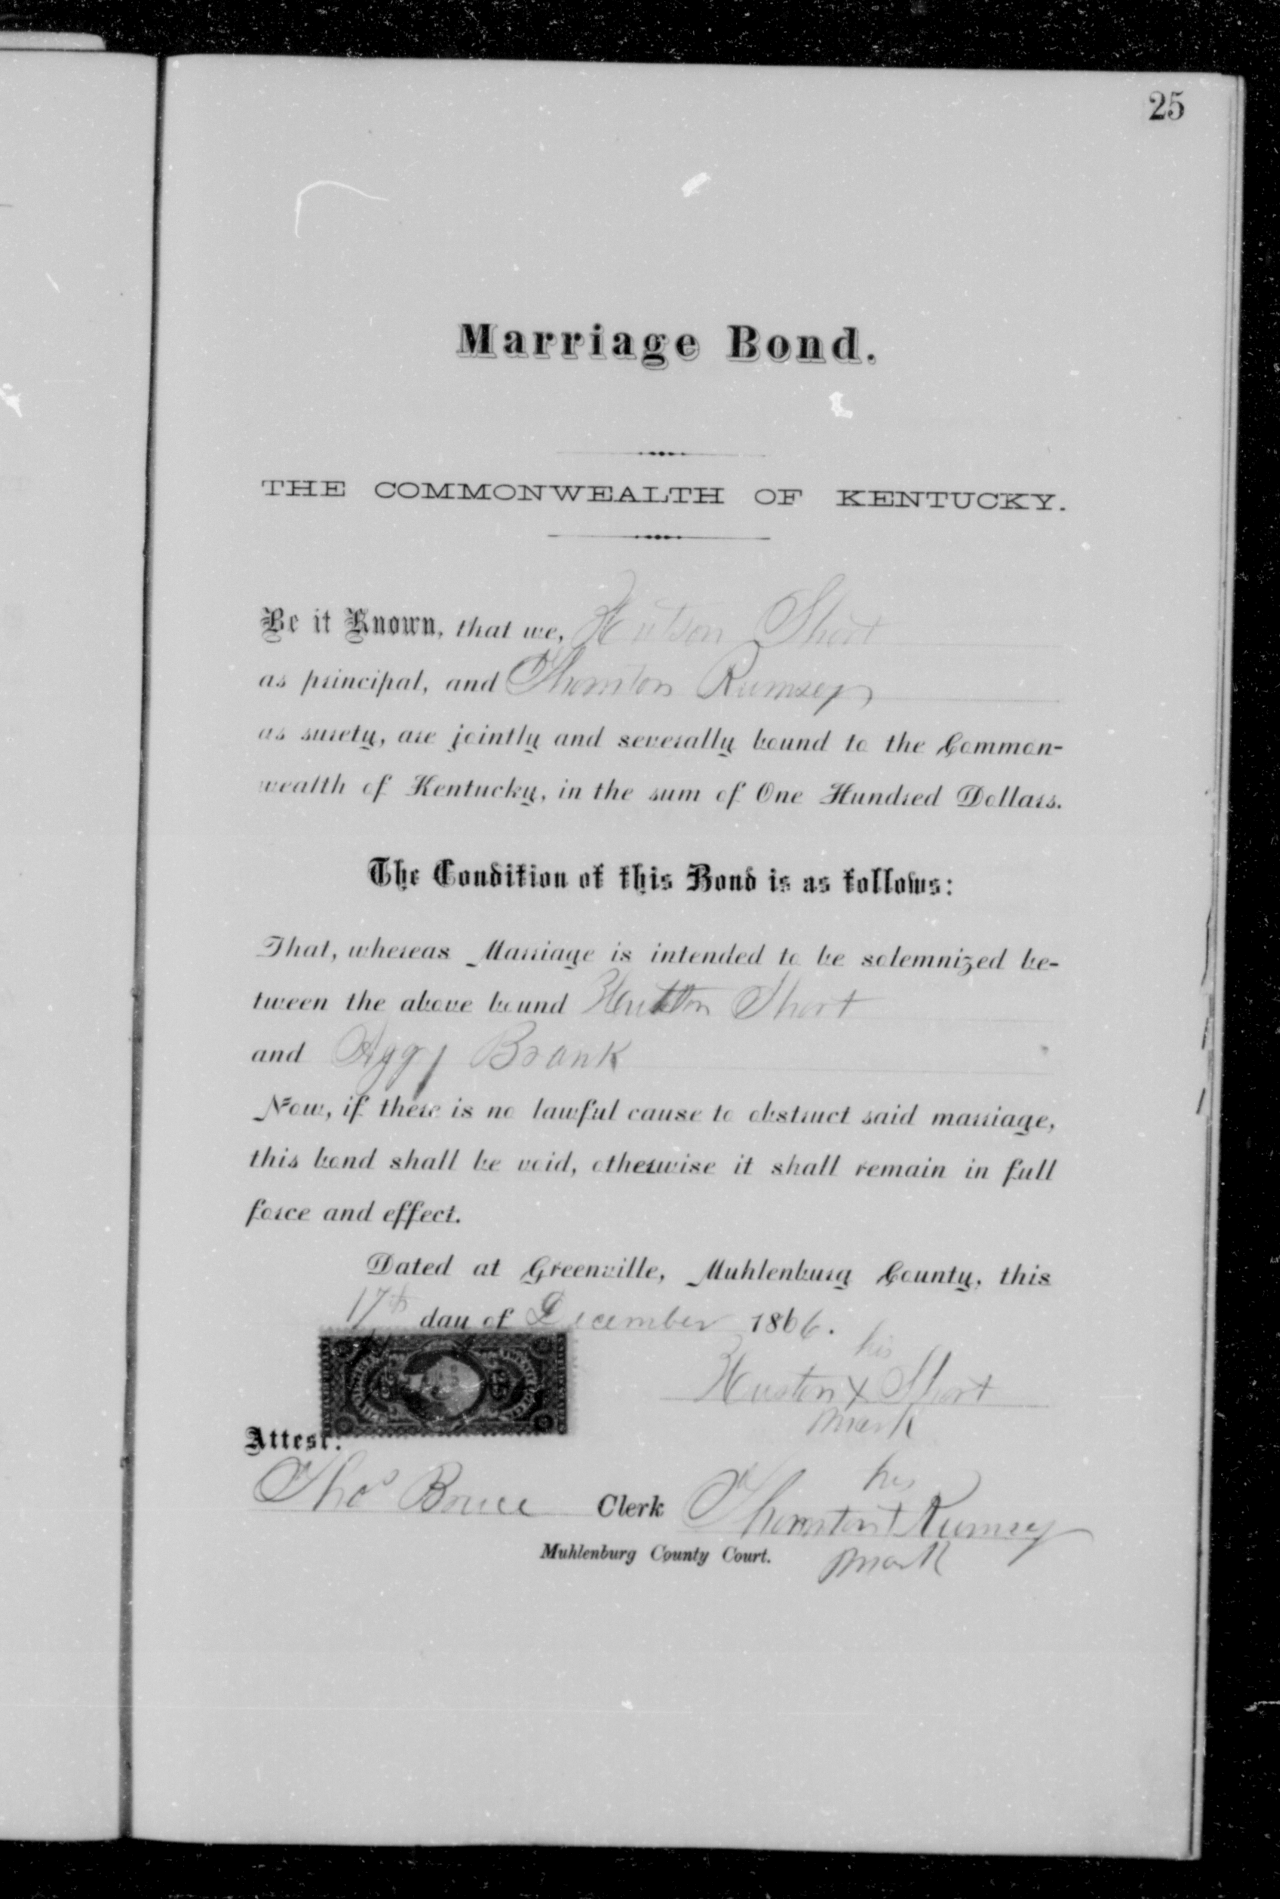 25
Marriage Bond.
THE COMMONWEALTH OF KENTUCKY.
Be it Known, that we, Hutson Short
as principal, and Thornton Rumsey
as surety, are jointly and severally bound to the Common-
wealth of Kentucky, in the sum of One Hundred Dollars.
The Condition of this Bond is as follows:
That, whereas Marriage is intended to be solemnized be-
tween the above bound Hutson Short
and Aggy Brank
Now, if there is no lawful cause to obstruct said marriage,
this bond shall be void, otherwise it shall remain in full
force and effect.
Dated at Greenville, Muhlenburg County, this
17th day of December 1866.
his
Huston X Short
mark
Attest:
his
Thos Bruce Clerk Thornton + Rumsey
Muhlenburg County Court. mark